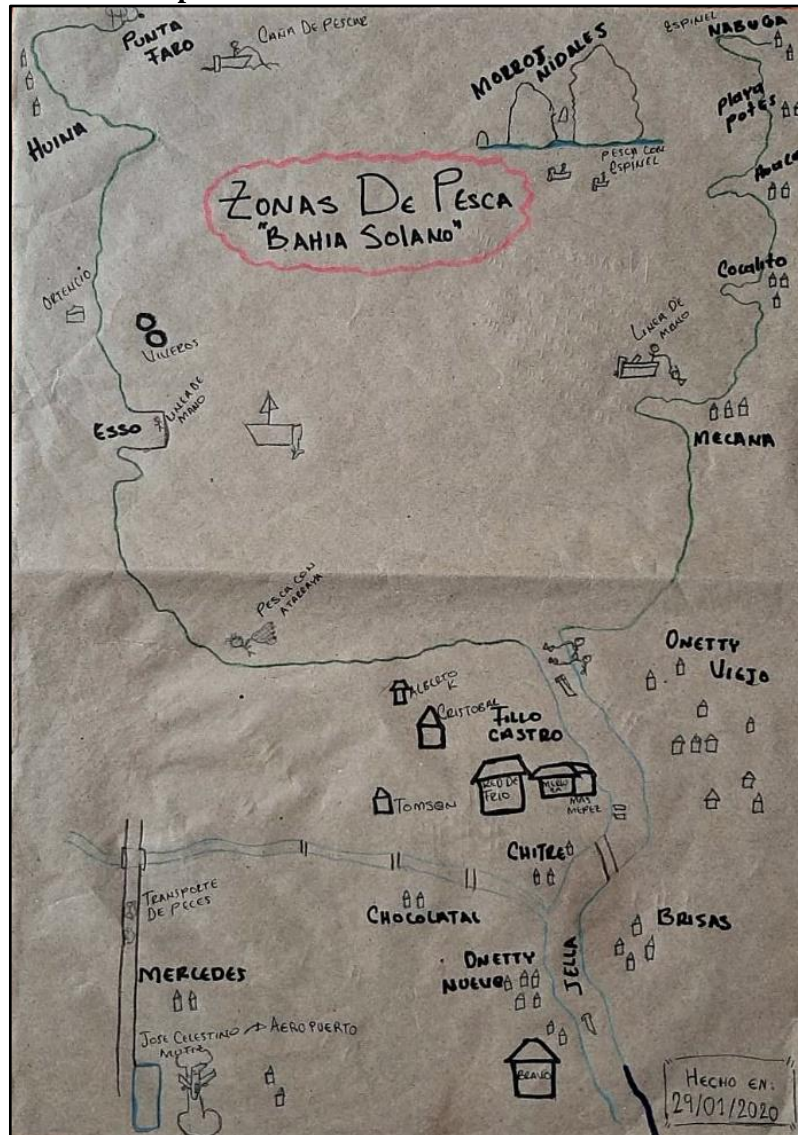 PUNTA
FARO
CAÑA DE PESCAR
ESPINEL
NABUGA
MORROS
NIDALES
Playa
potes
HUINA
PESCA CON
ESPINEL
ZONAS DE PESCA
"BAHIA SOLANO"
Cocalito
ORTENCIO
VIVEROS
LINEA DE
MANO
LINEA DE
MANO
ESSO
MECANA
PESCA CON
ATARRAYA
ONETTY
VIEJO
ALBERTO
K
CRISTOBAL
TILLO
CASTRO
RED DE
FRIO
MAS
TOMSON
CHITRE
TRANSPORTE
DE PECES
CHOCOLATAL
BRISAS
JELLA
ONETTY
NUEVO
MERCEDES
JOSE CELESTINO
MUTIZ
AEROPUERTO
BRAVO
HECHO EN:
29/01/2020